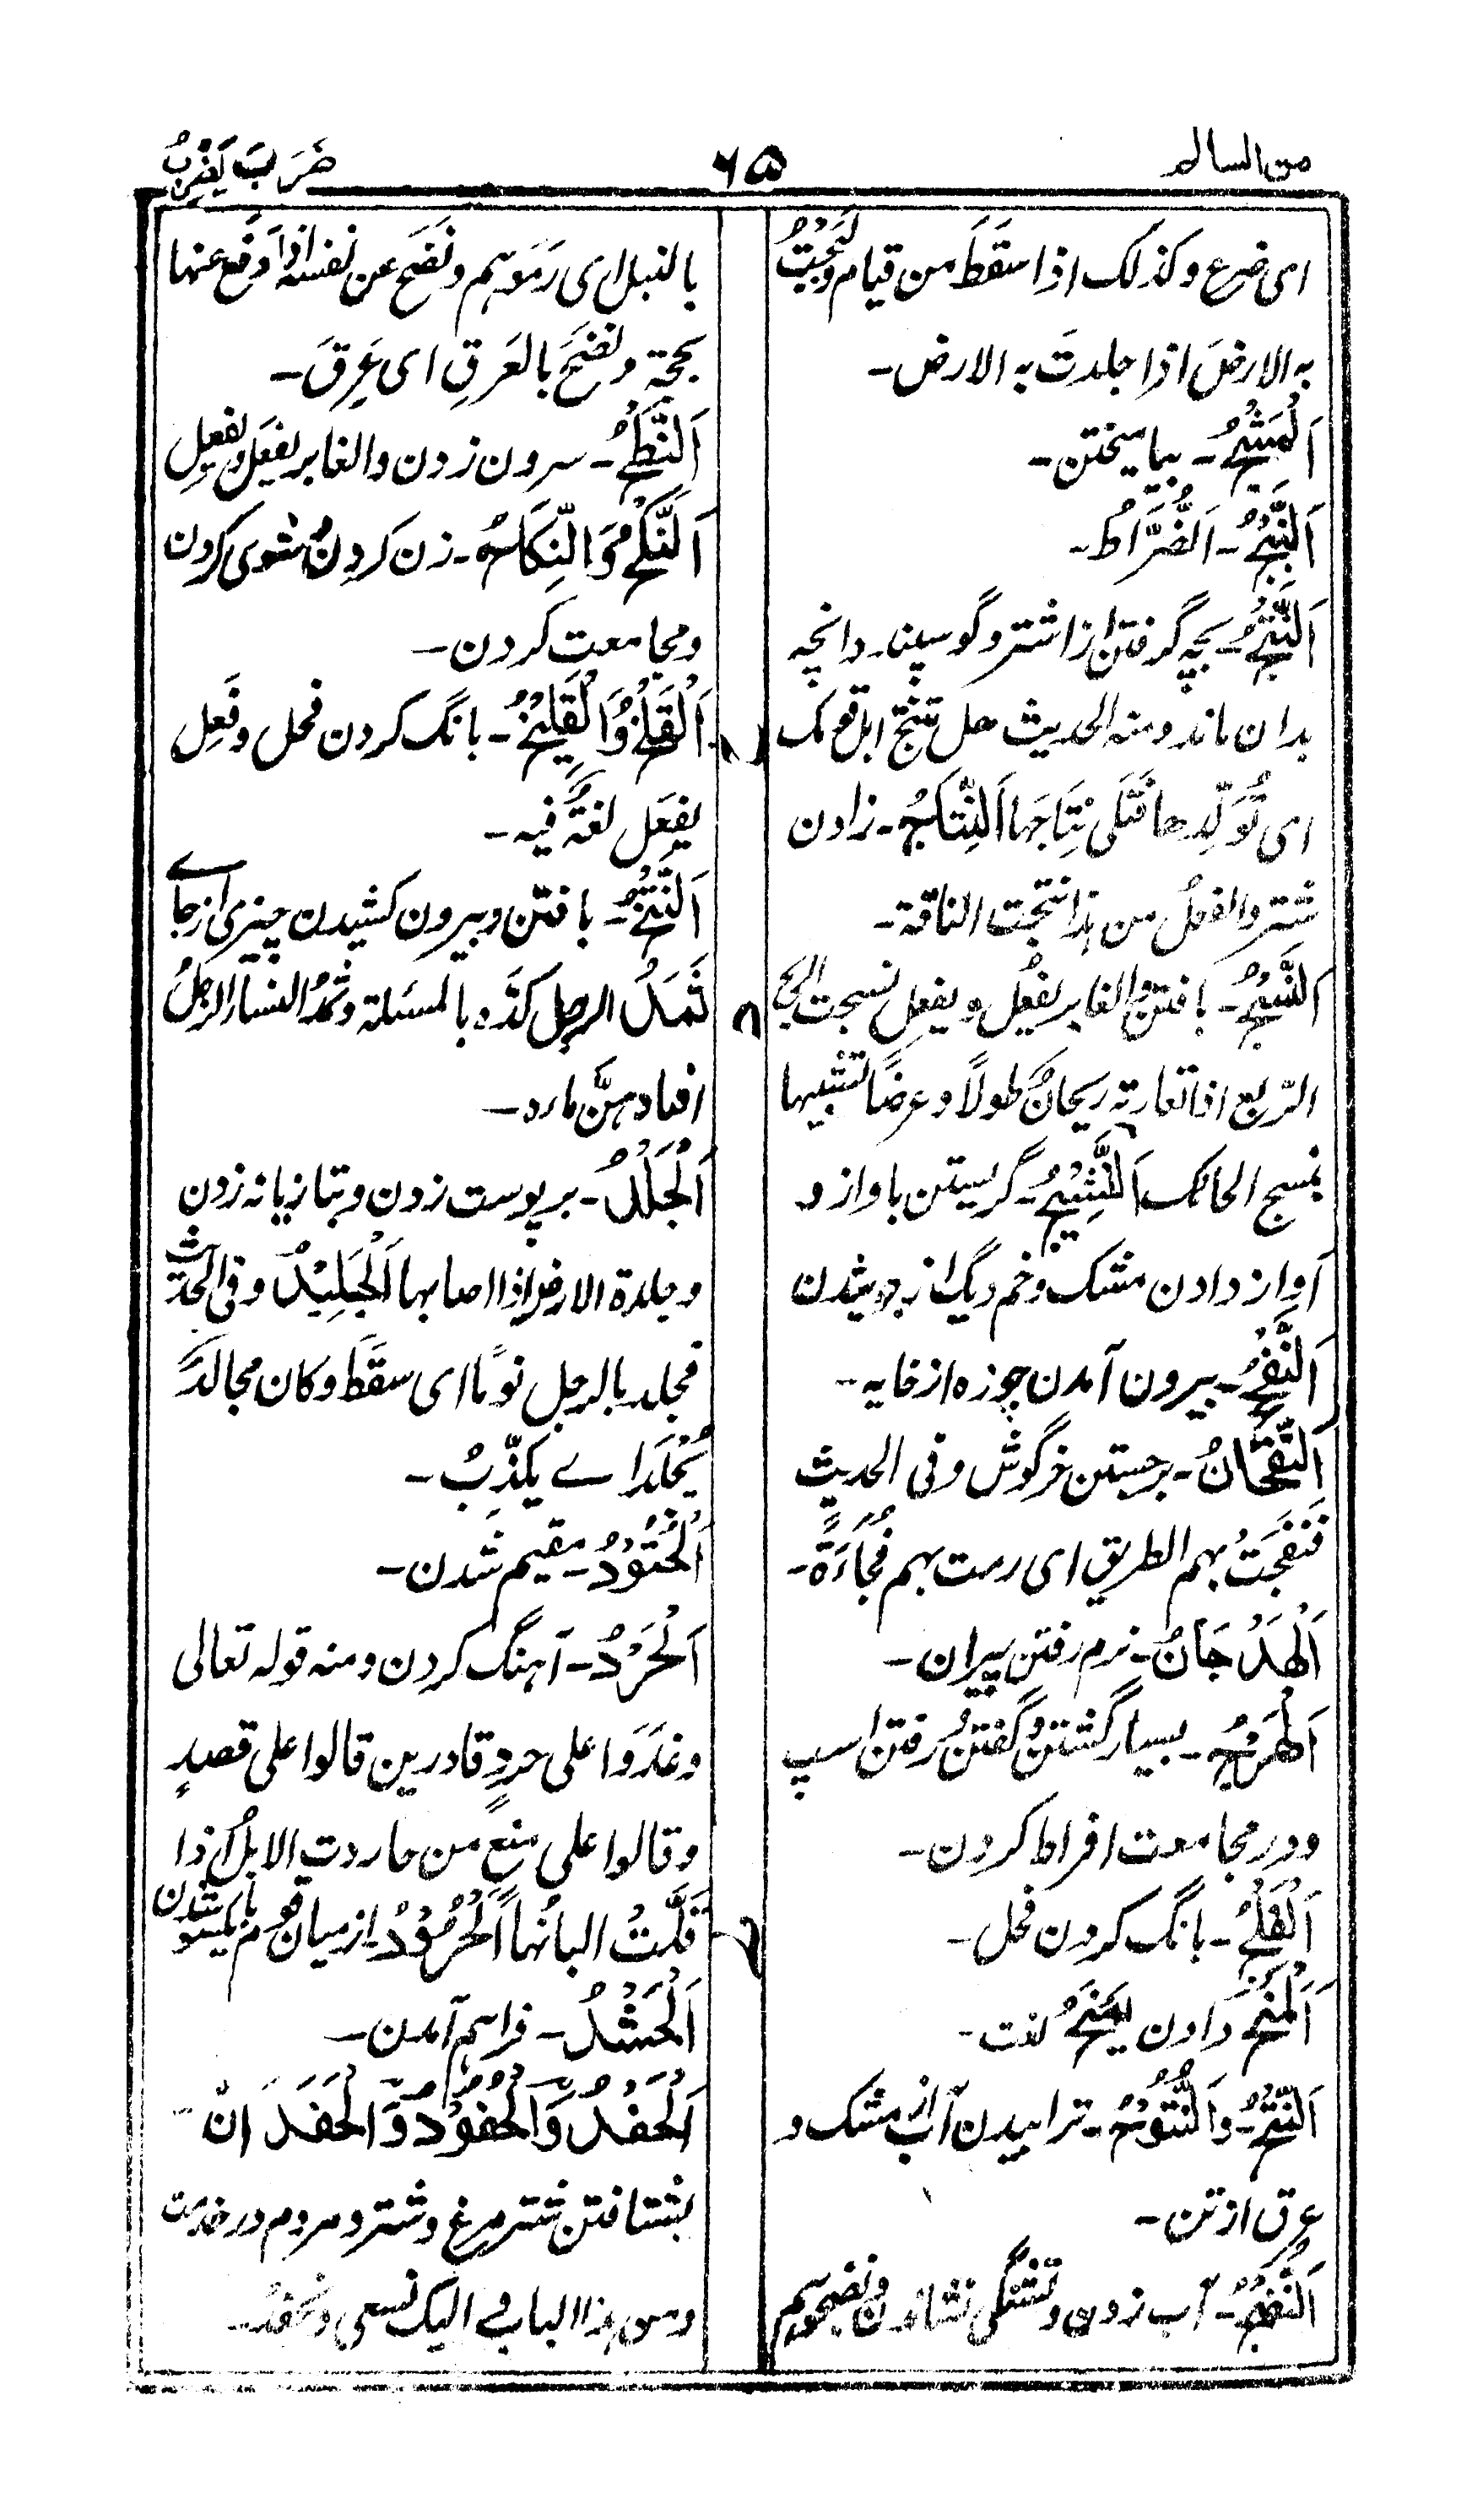 من السالم
۶۵
ضَرَبَ يَضْرِبُ
اى ضرع وكذلك اذا سَقَطَ من قيام ولَبَجْتُ
به الارضَ اذا جلدتَ به الارض۔
اَلْمَشْجُ۔ بياميختن۔
اَلنَّبْجُ۔ اَلضُّرَاطُ۔
اَلنَّتْجُ۔ بچه گرفتن از اشتر و گوسپند وانچه
بدان ماند ومنه الحديث هل تنتج ابل قومك
اى تُوَلِّدها فتلى نِتَاجَها اَلنِّتَاجُ۔ زادن
شتر والفعلُ من هذا نتجت الناقة۔
اَلنَّسْجُ۔ بافتن والغابر يفعُل ويفعِل نسجت الريح
الرّبع اذا تعاورته ريحان طولًا وعرضًا تشبيها
بنسج الحائك اَلنَّشِيْجُ۔ گريستن باواز و
آواز دادن مشك وخم وديگ از جوشيدن
اَلنَّفْجُ۔ بيرون آمدن چوزه از خايه۔
اَلنَّفَجَانُ۔ برجستن خرگوش وفى الحديث
فَنَفَجَتْ بهم الطريق اى رمت بهم فُجَاءَةً۔
اَلْهَدَجَانُ۔ نرم رفتن پيران۔
اَلْهَرْجُ۔ بسيار گشتن وگفتن ورفتن اسپ
ودر مجامعت افراط كردن۔
اَلْقَلْحُ۔ بانگ كردن فحل۔
اَلْمَنْحُ دادن يَمْنَحُ لغت۔
اَلنَّتْحُ۔ وَالنُّتُوْحُ۔ ترابيدن آب از مشك و
عرق از تن۔
اَلنَّضْحُ۔ آب زدن وتشنگى نشاندن ونضحوهم
بالنبل اى رَمَوهم ونَضَحَ عن نفسه اذا دَفَع عنها
بحجةٍ ونضَحَ بالعَرَقِ اى عَرِقَ۔
اَلنَّطْحُ۔ سرون زدن والغابر يفعَل ويفعِل
اَلنَّكْحُ وَالنِّكَاحُ۔ زن كردن وشوى كردن
ومجامعت كردن۔
اَلْقَلْخُ وَالْقَلِيْخُ۔ بانگ كردن فحل وفَعِل
يفعَل لغةٌ فيه۔
اَلنَّتْخُ۔ بافتن وبيرون كشيدن چيزى از جاے
ثَمَدَ الرجل كدّه بالمسئلة وثمدْ النساء الرجلُ
افناد هنَّ ماءه۔
اَلْجَلْدُ۔ بر پوست زدن وبتازيانه زدن
وجلدة الارض اذا اصابها اَلْجَلِيْدُ وفى الحديث
فجلد بالرجل نومًا اى سقَط وكان مجالدٌ
يُجْلَدُ اے يكذّبُ۔
اَلْحُتُوْدُ۔ مقيم شدن۔
اَلْحَرْدُ۔ آهنگ كردن ومنه قوله تعالى
وغدَوا على حردٍ قادرين قالوا على قصدٍ
وقالوا على منعٍ من حاردت الابلُ اذا
قَلَّتْ البانُها اَلْحُرُوْدُ۔ از ميان قوم با يكسو شدن
اَلْحَشْدُ۔ فراهم آمدن۔
اَلْحَفْدُ وَالْحُفُوْدُ وَالْحَفَدَانُ۔
بشتافتن شتر مرغ وشتر ومردم در خدمت
ومن هذا الباب واليك نسعى ونحفد۔